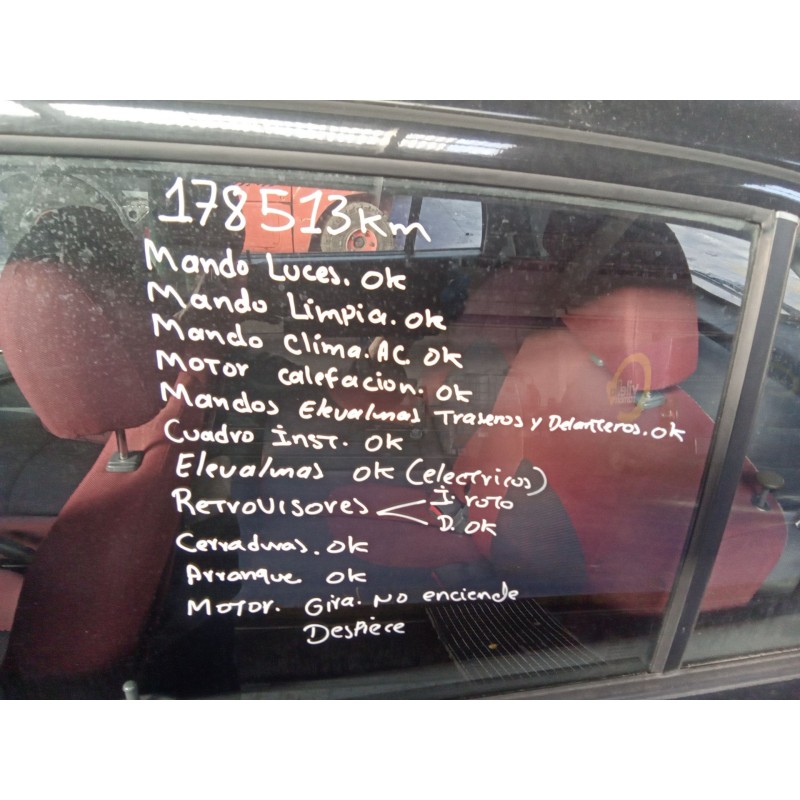 178513 km
Mando Luces. ok
Mando Limpia. ok
Mando Clima. AC ok
Motor calefacion. ok
Mandos Elevalunas Traseros y Delanteros. ok
Cuadro inst. ok
Elevalunas ok (electricos)
Retrovisores
I. roto
D. ok
Cerraduras. ok
Arranque ok
Motor. Gira. No enciende
Despiece